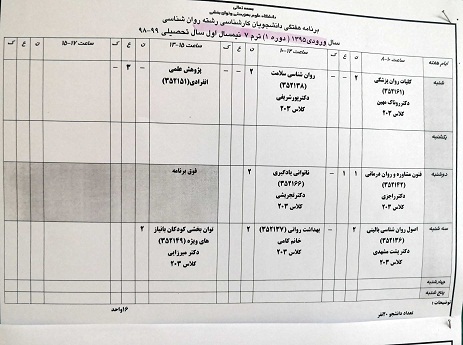 بسمه تعالی
دانشگاه علوم بهزیستی و توانبخشی
برنامه هفتگی دانشجویان کارشناسی رشته روان شناسی
سال ورودی ۱۳۹۵ ( دوره ۱) ترم ۷ نیمسال اول سال تحصیلی ۹۹-۹۸
ایام هفته
ساعت ۱۰-۸
ن
ع
ک
ساعت ۱۲-۱۰
ن
ع
ک
ساعت ۱۵-۱۳
ن
ع
ک
ساعت ۱۷-۱۵
ن
ع
ک
شنبه
کلیات روان پزشکی
(۳۵۲۱۶۱)
دکتر روناک مهین
کلاس ۲۰۳
۲
-
روان شناسی سلامت
(۳۵۲۱۳۸)
دکتر پورشریفی
کلاس ۲۰۳
۲
-
پژوهش علمی
انفرادی(۳۵۲۱۵۱)
-
۳
-
یکشنبه
دوشنبه
فنون مشاوره و روان درمانی
(۳۵۲۱۴۲)
دکتر رازجی
کلاس ۲۰۳
۱
۱
-
ناتوانی یادگیری
(۳۵۲۱۶۶)
دکتر تجریشی
کلاس ۲۰۳
۲
فوق برنامه
سه شنبه
اصول روان شناسی بالینی
(۳۵۲۱۴۶)
دکتر پشت مشهدی
کلاس ۲۰۳
۲
-
بهداشت روانی (۳۵۲۱۳۷)
خانم کامی
کلاس ۲۰۳
۲
توان بخشی کودکان بانیاز
های ویژه (۳۵۲۱۴۹)
دکتر میرزایی
کلاس ۲۰۳
۲
چهارشنبه
پنج شنبه
توضیحات :
تعداد دانشجو ۲۰نفر
۱۶واحد